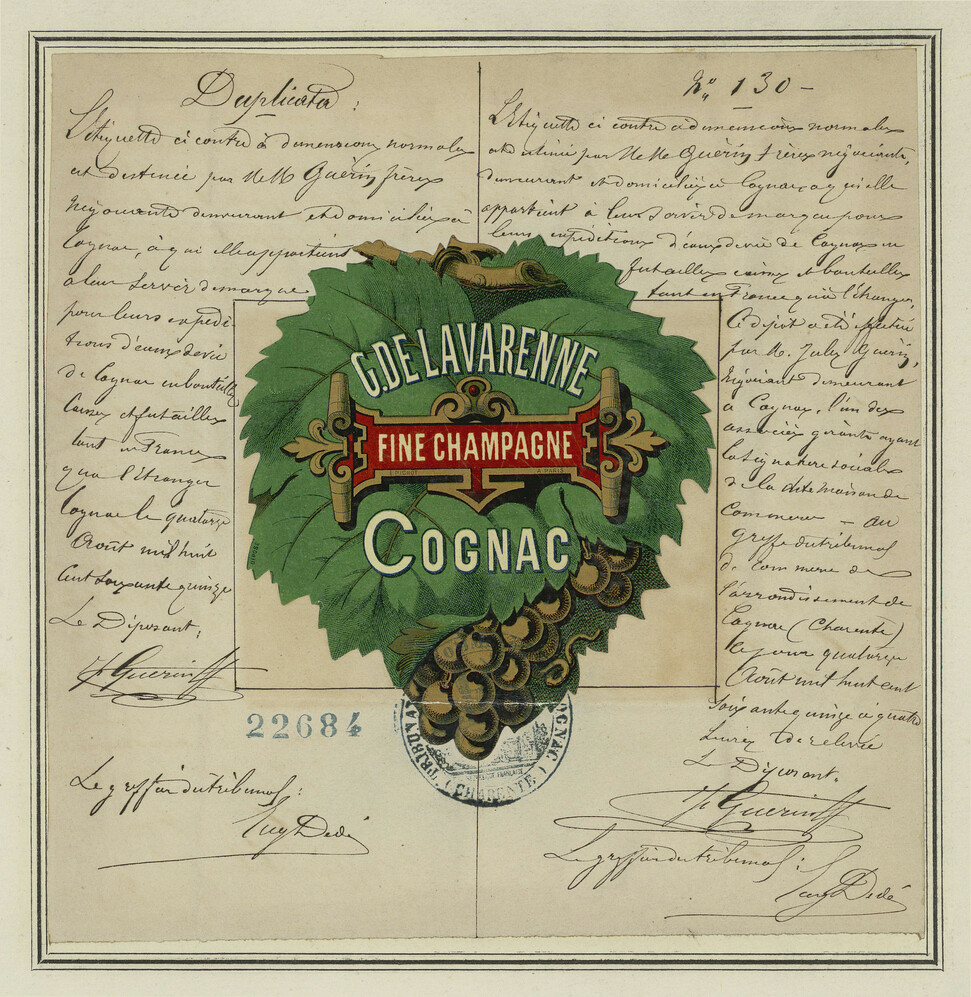 Duplicata :
L'étiquette ci contre à dimensions normales
est destinée par M.M Guérin frères
négociants demeurant et domiciliés à
Cognac, à qui elle appartient
à leur servir de marque
pour leurs expédi-
tions d'eaux de vie
de Cognac en bouteilles
Caisses et futailles
tant en France
que l'étranger
Cognac le quatorze
Août mil huit
cent soixante quinze
Le Déposant,
22684
Le greffier du tribunal :
No 130 -
L'Etiquette ci contre à dimensions normales
est destinée par M.M. Guérin frères négociants,
demeurant et domiciliés à Cognac, à qui elle
appartient à leur servir de marque pour
leurs expéditions d'eaux de vie de Cognac en
futailles caisses et bouteilles
tant en France qu'à l'étranger.
Ce dépôt a été effectué
par M. Jules Guérin,
Négociant demeurant
à Cognac, l'un des
associés gérants ayant
la signature sociale
de la dite maison de
Commerce - au
greffe du tribunal
de Commerce de
l'arrondissement de
Cognac (Charente)
le jour quatorze
Août mil huit cent
soixante quinze à quatre
heures de relevée
Le Déposant.
Le greffier du tribunal :
G. DE LAVARENNE
FINE CHAMPAGNE
COGNAC
CHARENTE